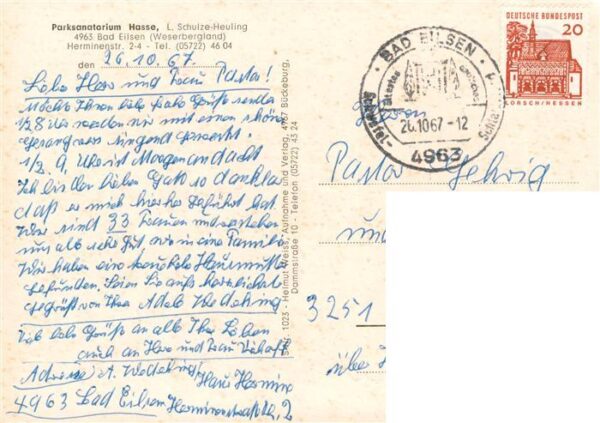 Parksanatorium Hasse, L. Schulze-Heuling
4963 Bad Eilsen (Weserbergland)
Herminenstr. 2-4 - Tel. (05722) 46 04
den 26.10.67.
Liebe Herr und Frau Pastor!
Möchte Ihnen liebe Grüße senden
1/2 8 Uhr werden wir mit einem schönen
Gesang singend geweckt.
1/2 9 Uhr ist Morgenandacht
Ich bin der liebe Gott so dankbar
daß er mich hierher geführt hat
Wir sind 33 Frauen und verstehen
uns alle sehr gut, wie in eine Familie.
Wir haben eine Hausmutter
gefunden. Seien Sie aufs herzlichste
gegrüßt von Ihre Adele Wedeking
Viele liebe Grüße an alle Ihre Lieben
auch an Herr und Frau
Adresse A. Wedeking
Haus Hermine
4963 Bad Eilsen Herminenstraße 2
Best. 1023 - Helmut Weiss, Aufnahme und Verlag, 4967 Bückeburg,
Dammstraße 10 - Telefon (05722) 43 24
BAD EILSEN
26.10.67-12
4963
DEUTSCHE BUNDESPOST
20
LORSCH/HESSEN
Pastor Gehrig
und
3251
über H